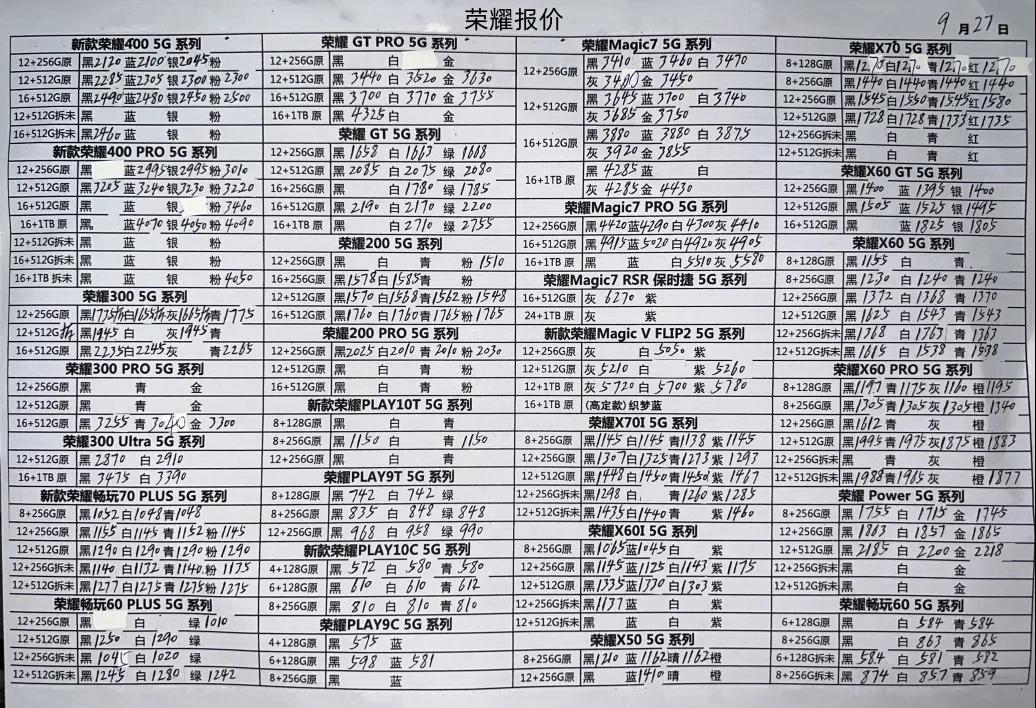 荣耀报价
9月27日
新款荣耀400 5G 系列
12+256G原 黑2120 蓝2100 银2045 粉
12+512G原 黑2285 蓝2305 银2300 粉2300
16+512G原 黑2490 蓝2480 银2450 粉2500
12+512G拆未 黑 蓝 银 粉
16+512G拆未 黑2460 蓝 银 粉
新款荣耀400 PRO 5G 系列
12+256G原 黑 蓝2995 银2995 粉3010
12+512G原 黑3205 蓝3240 银3230 粉3220
16+512G原 黑 蓝 银 粉3460
16+1TB 原 黑 蓝4070 银4050 粉4090
12+512G拆未 黑 蓝 银 粉
16+512G拆未 黑 蓝 银 粉
16+1TB 拆未 黑 蓝 银 粉4050
荣耀300 5G 系列
12+256G原 黑1735拆 白1655拆 灰1665拆 青1775
12+512G拆 黑1945 白 灰1945 青
16+512G原 黑2235 白2245 灰 青2265
荣耀300 PRO 5G 系列
12+256G原 黑 青 金
12+512G原 黑 青 金
16+512G原 黑3255 青3040 金3300
荣耀300 Ultra 5G 系列
12+512G原 黑2870 白2910
16+1TB 原 黑3475 白3390
新款荣耀畅玩70 PLUS 5G 系列
8+256G原 黑1052 白1048 青1048
12+256G原 黑1155 白1145 青1152 粉1145
12+512G原 黑1290 白1290 青1290 粉1290
12+256G拆未 黑1140 白1132 青1140 粉1135
12+512G拆未 黑1277 白1275 青1275 粉1275
荣耀畅玩60 PLUS 5G 系列
12+256G原 黑 白 绿1010
12+512G原 黑1250 白1290 绿
12+256G拆未 黑 白1020 绿
12+512G拆未 黑1245 白1280 绿1242
荣耀 GT PRO 5G 系列
12+256G原 黑 白 金
12+512G原 黑3440 白3520 金3630
16+512G原 黑3700 白3770 金3755
16+1TB 原 黑4325 白 金
荣耀 GT 5G 系列
12+256G原 黑1658 白1663 绿1668
12+512G原 黑2085 白2075 绿2080
16+256G原 黑 白1780 绿1785
16+512G原 黑2190 白2170 绿2200
16+1TB 原 黑 白2710 绿2755
荣耀200 5G 系列
12+256G原 黑 白 青 粉1510
16+256G原 黑1578 白1585 青 粉
12+512G原 黑1570 白1568 青1562 粉1548
16+512G原 黑1760 白1760 青1765 粉1765
荣耀200 PRO 5G 系列
12+256G原 黑2025 白2010 青2010 粉2030
12+512G原 黑 白 青 粉
16+512G原 黑 白 青 粉
新款荣耀PLAY10T 5G 系列
8+128G原 黑 白 青
8+256G原 黑1150 白 青1150
12+256G原 黑 白 青
荣耀PLAY9T 5G 系列
8+128G原 黑742 白742 绿
8+256G原 黑835 白848 绿848
12+256G原 黑968 白958 绿990
新款荣耀PLAY10C 5G 系列
4+128G原 黑572 白580 青580
6+128G原 黑610 白610 青612
8+256G原 黑810 白810 青810
荣耀PLAY9C 5G 系列
4+128G原 黑575 蓝
6+128G原 黑598 蓝581
8+256G原 黑 蓝
荣耀Magic7 5G 系列
12+256G原 黑3410 蓝3460 白3470
灰 金3450
12+512G原 黑3645 蓝3700 白3740
灰3685 金3750
16+512G原 黑3880 蓝3880 白3875
灰3920 金3855
16+1TB 原 黑4285 蓝 白
灰4285 金4430
荣耀Magic7 PRO 5G 系列
12+256G原 黑4420 蓝4290 白4300 灰4410
16+512G原 黑4915 蓝5020 白4920 灰4905
16+1TB 原 黑 蓝 白5510 灰5580
荣耀Magic7 RSR 保时捷 5G 系列
16+512G原 灰6270 紫
24+1TB 原 灰 紫
新款荣耀Magic V FLIP2 5G 系列
12+256G原 灰 白5050 紫
12+512G原 灰5210 白 紫5260
12+1TB 原 灰5720 白5700 紫5780
16+1TB 原 (高定款) 织梦蓝
荣耀X70I 5G 系列
8+256G原 黑1145 白1145 青1138 紫1145
12+256G原 黑1307 白1325 青1273 紫1293
12+512G原 黑1448 白1450 青1450 紫1467
12+256G拆未 黑1298 白 青1260 紫1285
12+512G拆未 黑1435 白1440 青 紫1460
荣耀X60I 5G 系列
8+256G原 黑1065 蓝1045 白 紫
12+256G原 黑1145 蓝1125 白1143 紫1175
12+512G原 黑1335 蓝1370 白1303 紫
12+256G拆未 黑1137 蓝 白 紫
12+512G拆未 黑 蓝 白 紫
荣耀X50 5G 系列
8+256G原 黑1210 蓝1162 晴1162 橙
12+256G原 黑 蓝1410 晴 橙
荣耀X70 5G 系列
8+128G原 黑1270 白1270 青1270 红1270
8+256G原 黑1440 白1440 青1440 红1440
12+256G原 黑1545 白1550 青1545 红1580
12+512G原 黑1728 白1728 青1733 红1735
12+256G拆未 黑 白 青 红
12+512G拆未 黑 白 青 红
荣耀X60 GT 5G 系列
12+256G原 黑1400 蓝1395 银1400
12+512G原 黑1505 蓝1525 银1495
16+512G原 黑 蓝1825 银1805
荣耀X60 5G 系列
8+128G原 黑1155 白 青
8+256G原 黑1230 白1240 青1240
12+256G原 黑1372 白1368 青1370
12+512G原 黑1625 白1543 青1543
12+256G拆未 黑1368 白1363 青1363
12+512G拆未 黑1615 白1538 青1538
荣耀X60 PRO 5G 系列
8+128G原 黑1197 青1175 灰1160 橙1195
8+256G原 黑1305 青1305 灰1305 橙1340
12+256G原 黑1612 青 灰 橙
12+512G原 黑1995 青1975 灰1875 橙1883
12+256G拆未 黑 青 灰 橙
12+512G拆未 黑1988 青1965 灰 橙1877
荣耀 Power 5G 系列
8+256G原 黑1755 白1715 金1745
12+256G原 黑1863 白1857 金1865
12+512G原 黑2185 白2200 金2218
12+256G拆未 黑 白 金
12+512G拆未 黑 白 金
荣耀畅玩60 5G 系列
6+128G原 黑 白584 青584
8+256G原 黑 白863 青865
6+128G拆未 黑584 白581 青582
8+256G拆未 黑874 白857 青859